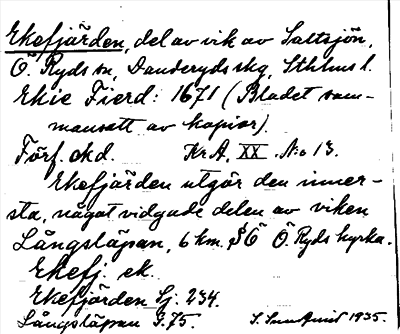 Ekefjärden, del av vik av Saltsjön,
Ö. Ryds sn, Danderyds skg, Sthlms l.
Ekie Fierd: 1671 (Bladet sam-
mansatt av kopior).
Förf. okd. Kr A, XX. No 13.
Ekefjärden utgör den inner-
sta, något vidgade delen av viken
Långstäpan, 6 km. SÖ Ö. Ryds kyrka.
Ekefj. ek.
Ekefjärden Sj. 234.
Långstäpan S.75. 1935.